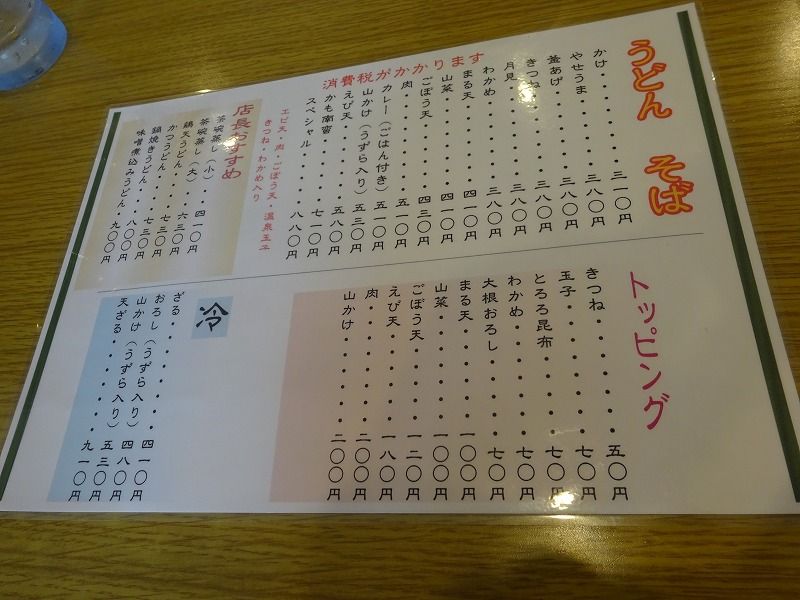 うどん そば
かけ・・・・・・・・三一〇円
やせうま・・・・・・三八〇円
釜あげ・・・・・・・三八〇円
きつね・・・・・・・三八〇円
月見・・・・・・・・三八〇円
わかめ・・・・・・・三八〇円
まる天・・・・・・・四一〇円
山菜・・・・・・・・四一〇円
ごぼう天・・・・・・四三〇円
肉・・・・・・・・・五一〇円
カレー（ごはん付き）五一〇円
山かけ（うずら入り）五三〇円
えび天・・・・・・・五八〇円
かも南蛮・・・・・・七一〇円
スペシャル・・・・・八八〇円
エビ天・肉・ごぼう天・温泉玉子
きつね・わかめ入り
消費税がかかります
店長おすすめ
茶碗蒸し（小）四一〇円
茶碗蒸し（大）六三〇円
鶏天うどん・・・七三〇円
かつうどん・・・七三〇円
鍋焼きうどん・・八〇〇円
味噌煮込みうどん・九〇〇円
トッピング
きつね・・・・・・五〇円
玉子・・・・・・・七〇円
とろろ昆布・・・・七〇円
わかめ・・・・・・七〇円
大根おろし・・・・七〇円
まる天・・・・・一〇〇円
山菜・・・・・・一〇〇円
ごぼう天・・・・一二〇円
えび天・・・・・一八〇円
肉・・・・・・・二〇〇円
山かけ・・・・・二〇〇円
冷
ざる・・・・・・・・四一〇円
おろし・・・・・・・四八〇円
山かけ（うずら入り）五三〇円
天ざる（うずら入り）九一〇円